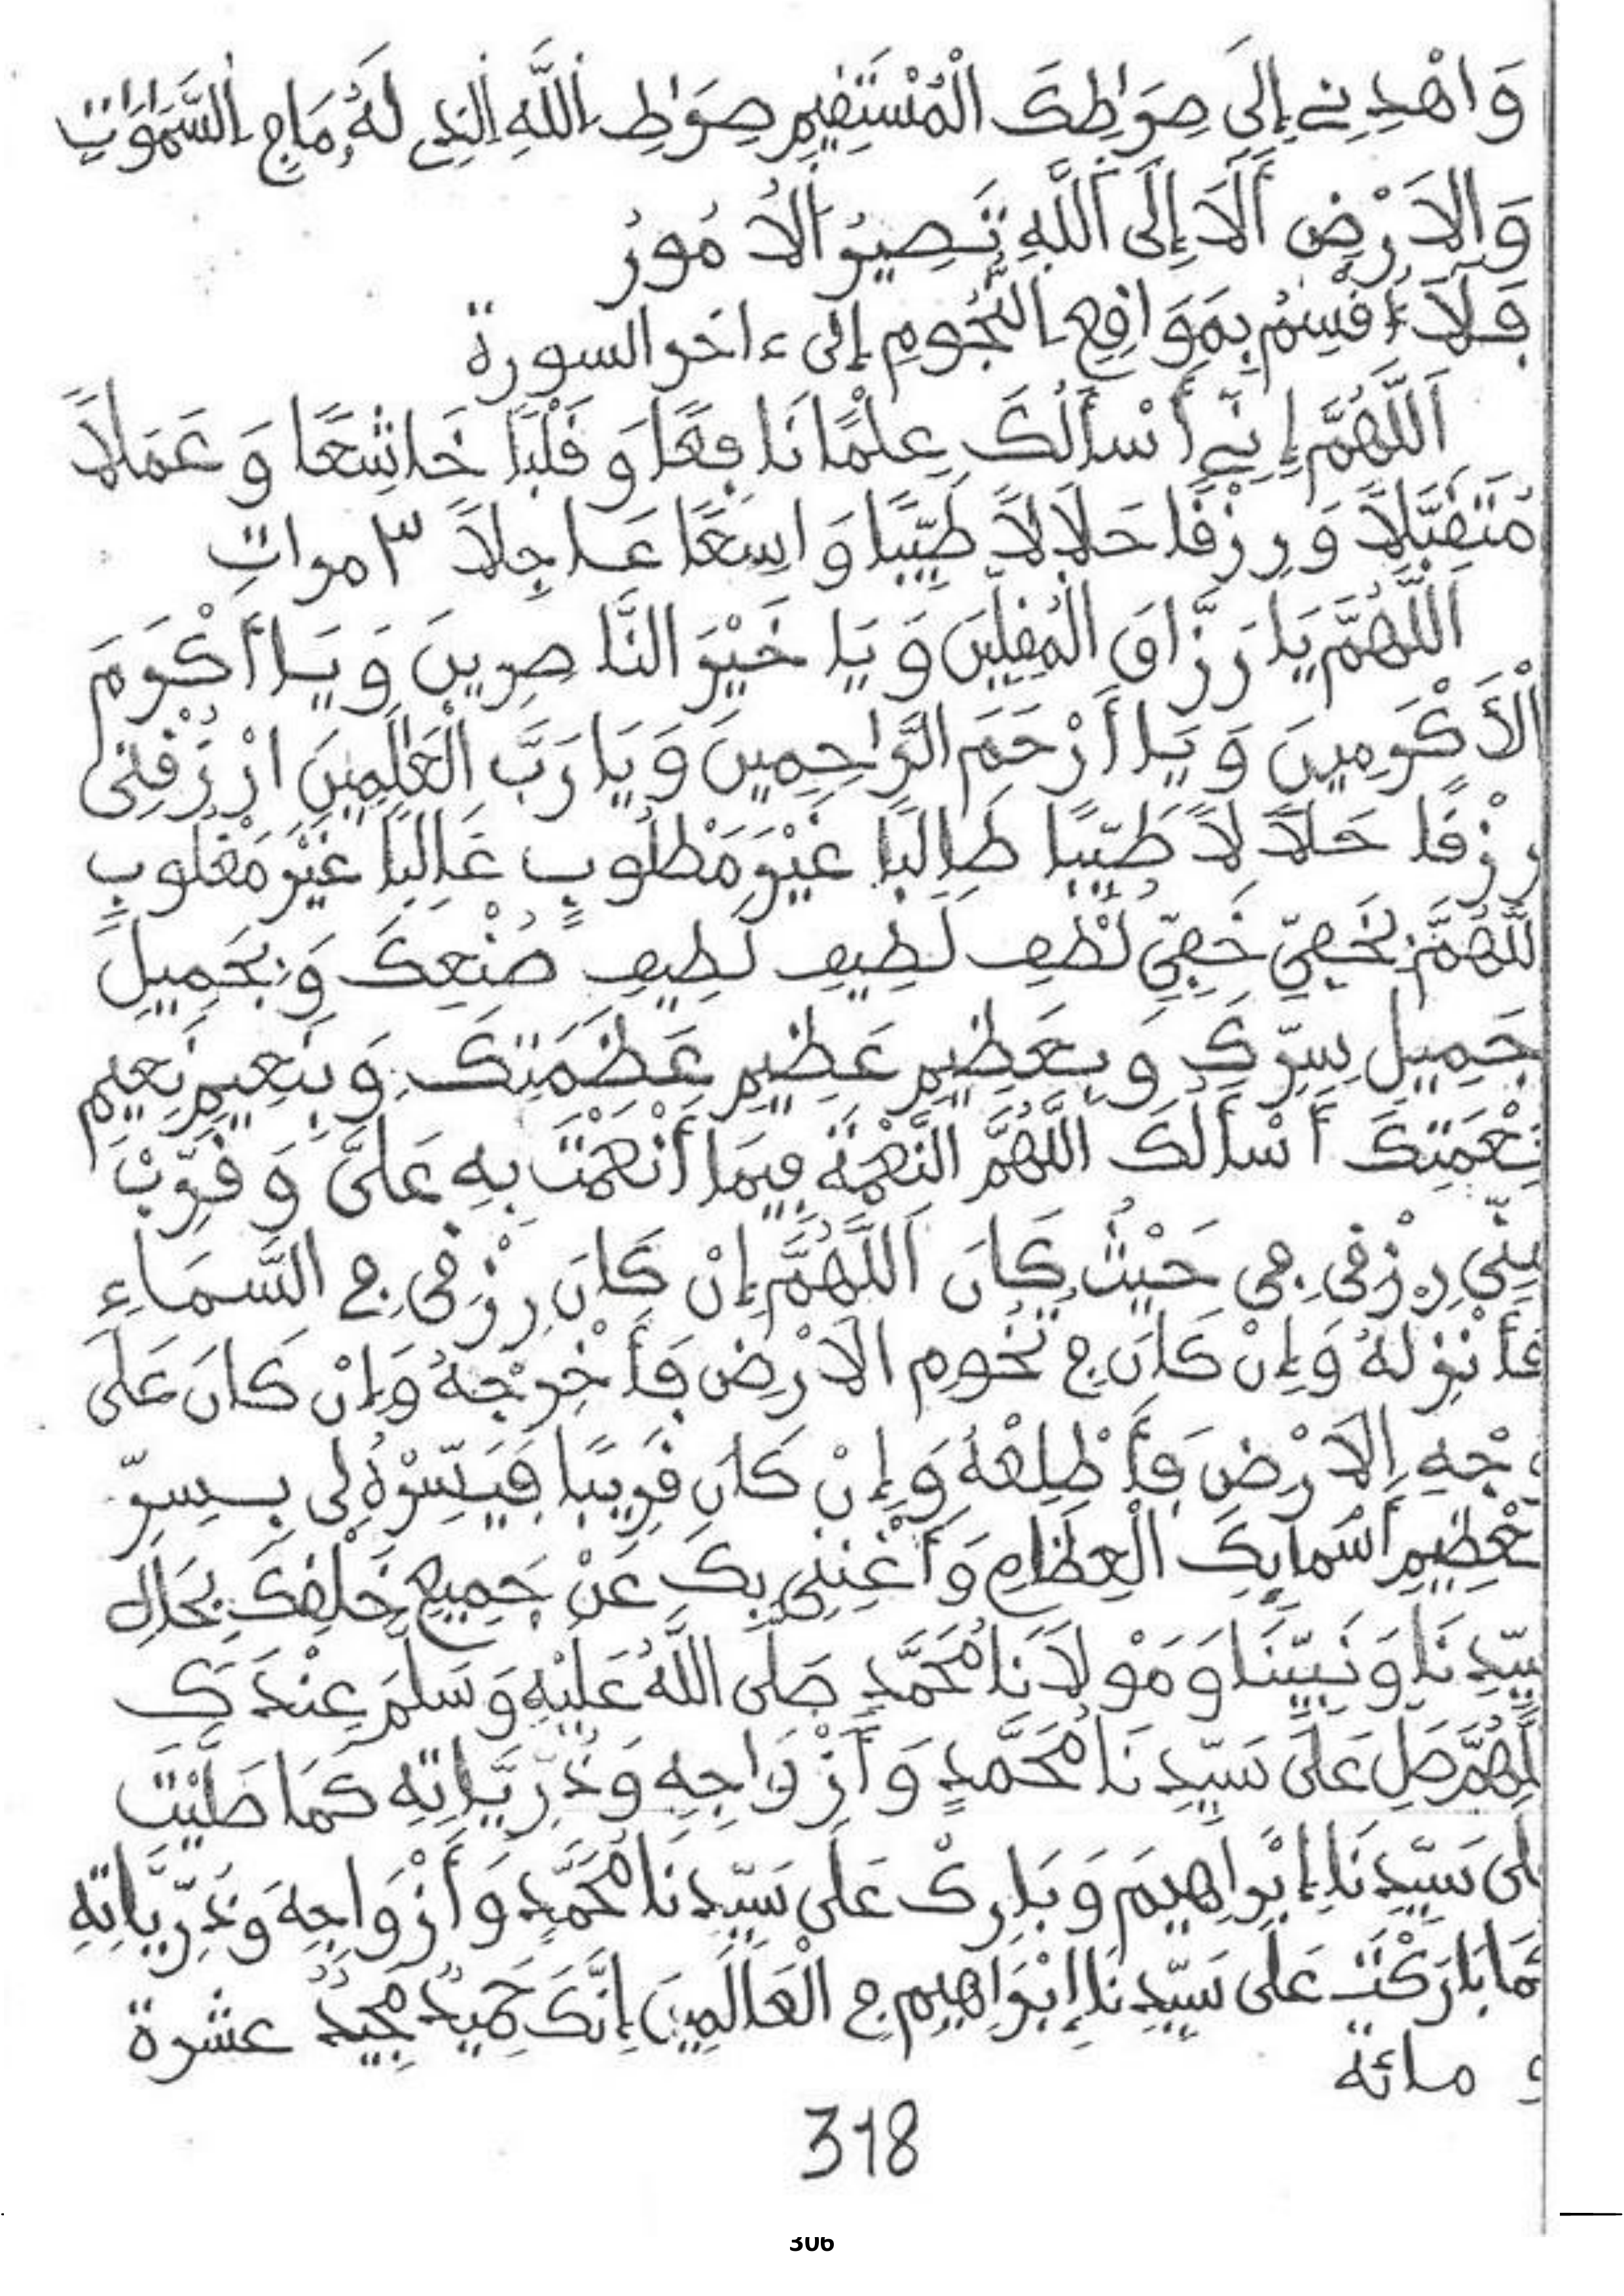 وَاهْدِنِے إِلَى صِرَاطِكَ الْمُسْتَقِيمِ صِرَاطِ اللَّهِ الَّذِے لَهُ مَا فِے السَّمَوَاتِ
وَالَارْضِ أَلَا إِلَى اللَّهِ تَصِيرُ الُامُورُ
فَلَا أُقْسِمُ بِمَوَاقِعِ النُّجُومِ إلى ءاخر السورة
اَللَّهُمَّ إِنِّے أَسْأَلُكَ عِلْمًا نَافِعًا وَقَلْبًا خَاشِعًا وَعَمَلًا
مُتَقَبَّلًا وَرِزْقًا حَلَالًا طَيِّبًا وَاسِعًا عَاجِلًا ٣ مرات
اَللَّهُمَّ يَا رَزَّاقَ الْمُقِلِّينَ وَيَا خَيْرَ النَّاصِرِينَ وَيَا أَكْرَمَ
الْأَكْرَمِينَ وَيَا أَرْحَمَ الرَّاحِمِينَ وَيَا رَبَّ الْعَالَمِينَ ارْزُقْنِى
رِزْقًا حَلَالًا طَيِّبًا طَالِبًا غَيْرَ مَطْلُوبٍ غَالِبًا غَيْرَ مَغْلُوبٍ
للَّهُمَّ بِخَفِيِّ خَفِيِّ لُطْفِ لَطِيفِ لَطِيفِ صُنْعِكَ وَبِجَمِيلِ
جَمِيلِ سِرِّكَ وَبِعَظِيمِ عَظِيمِ عَظَمَتِكَ وَبِنَعِيمِ نَعِيمِ
نِعْمَتِكَ أَسْأَلُكَ اللَّهُمَّ النِّعْمَةَ فِيمَا أَنْعَمْتَ بِهِ عَلَىَّ وَقَرِّبْ
مِنِّي رِزْقِى مِنْ حَيْثُ كَانَ اَللَّهُمَّ إِنْ كَانَ رِزْقِى فِي السَّمَاءِ
فَأَنْزِلْهُ وَإِنْ كَانَ فِي تُخُومِ الَارْضِ فَأَخْرِجْهُ وَإِنْ كَانَ عَلَى
وَجْهِ الَارْضِ فَأَطْلِعْهُ وَإِنْ كَانَ قَرِيبًا فَيَسِّرْهُ لِى بِسِرِّ
عَظِيمِ أَسْمَائِكَ الْعِظَامِ وَأَغْنِنِي بِكَ عَنْ جَمِيعِ خَلْقِكَ بِجَاهِ
سَيِّدِنَا وَنَبِيِّنَا وَمَوْلَانَا مُحَمَّدٍ صَلَّى اللَّهُ عَلَيْهِ وَسَلَّمَ عِنْدَكَ
للَّهُمَّ صَلِّ عَلَى سَيِّدِنَا مُحَمَّدٍ وَأَزْوَاجِهِ وَذُرِّيَّاتِهِ كَمَا صَلَّيْتَ
عَلَى سَيِّدِنَا إِبْرَاهِيمَ وَبَارِكْ عَلَى سَيِّدِنَا مُحَمَّدٍ وَأَزْوَاجِهِ وَذُرِّيَّاتِهِ
كَمَا بَارَكْتَ عَلَى سَيِّدِنَا إِبْرَاهِيمَ فِي الْعَالَمِينَ إِنَّكَ حَمِيدٌ مَجِيدٌ عشرة
و مائة
318
306